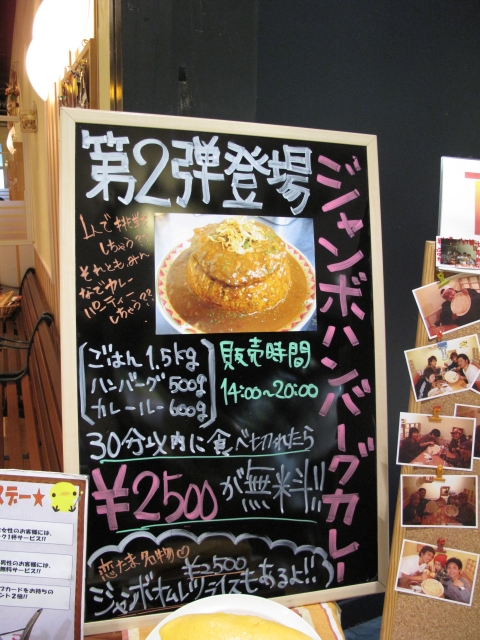 第2弾登場
ジャンボハンバーグカレー
1人で挑戦
しちゃう?
それともみん
なでカレー
パーティー
しちゃう??
ごはん 1.5kg
ハンバーグ 500g
カレールー 600g
販売時間
14:00〜20:00
30分以内に食べ切れたら
¥2500が無料!!
恋たま名物♡
¥2500
ジャンボオムライスもあるよ!!
デー★
女性のお客様には、
ク1杯サービス!!
男性のお客様には、
無料サービス!!
プカードをお持ちの
ント2個!!